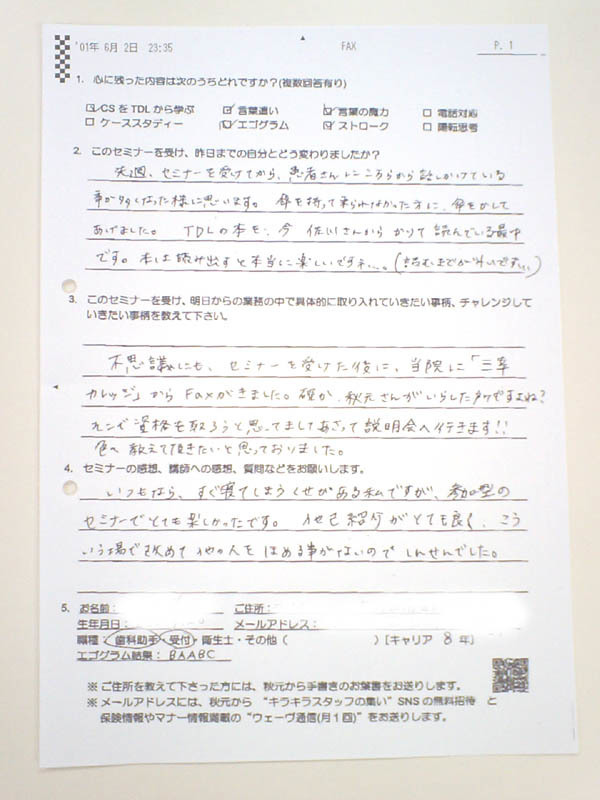 '01年 6月 2日 23:35 FAX P. 1
1. 心に残った内容は次のうちどれですか?(複数回答有り)
☑ CSをTDLから学ぶ ☑ 言葉遣い ☑ 言葉の魔力 □ 電話対応
□ ケーススタディー ☑ エゴグラム ☑ ストローク □ 陽転思考
2. このセミナーを受け、昨日までの自分とどう変わりましたか?
先週、セミナーを受けてから、患者さんにこちらから話しかけている
事が多くなった様に思います。 傘を持って来られなかった方に、傘をかして
あげました。 TDLの本を、今 佐川さんから かりて 読んでいる最中
です。本は読み出すと本当に楽しいですネ…。(読むまでが
3. このセミナーを受け、明日からの業務の中で具体的に取り入れていきたい事柄、チャレンジして
いきたい事柄を教えて下さい。
不思議にも、セミナーを受けた後に、当院に「三幸
カレッジ」からFaxがきました。確か、秋元さんがいらした所ですよね?
資格を取ろうと思ってましてあさって説明会へ行きます!!
色々教えて頂きたいと思っておりました。
4. セミナーの感想、講師への感想、質問などをお願いします。
いつもなら、すぐ寝てしまうくせがある私ですが、参加型の
セミナーでとても楽しかったです。 他己紹介がとても良く、こう
いう場で改めて他の人をほめる事がないのでしんせんでした。
5. お名前: ご住所:
生年月日: メールアドレス:
職種:歯科助手・受付・衛生士・その他( )【キャリア 8 年】
エゴグラム結果:BAABC
※ ご住所を教えて下さった方には、秋元から手書きのお葉書をお送りします。
※ メールアドレスには、秋元から “キラキラスタッフの集い” SNSの無料招待 と
保険情報やマナー情報満載の“ウェーヴ通信(月1回)”をお送りします。